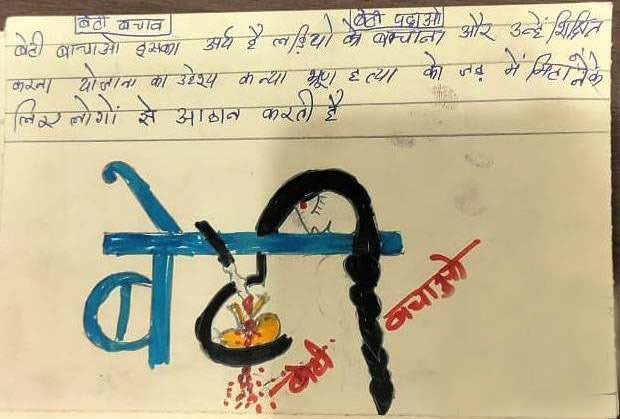 बेटी बचाव बेटी पढ़ाओ
बेटी बाचाओ इसका अर्थ है लड़ियो को बच्चाना और उन्हें शिक्षित
करना योजाना का उद्देश्य कन्या भ्रूण हत्या को जड़ में मिटाने के
लिए लोगों से आहान करती है
बेटी
बचाओ